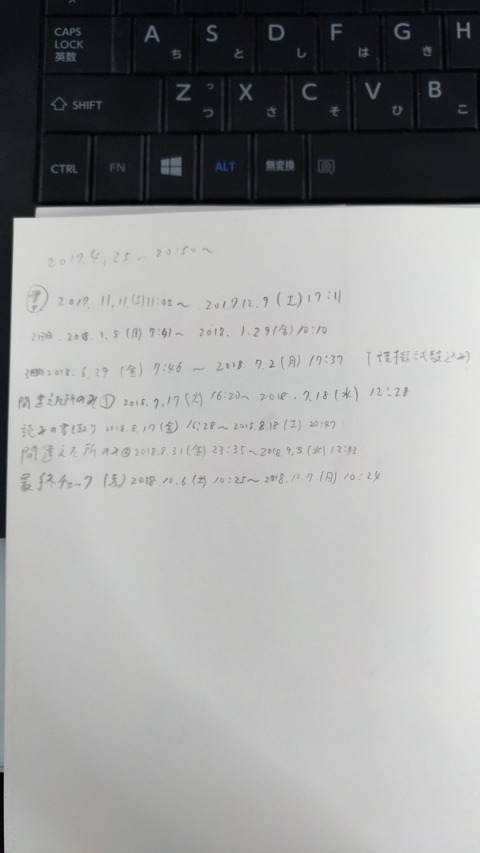 CAPS LOCK 英数 A ち S と D し F は G き H
SHIFT Z っ つ X さ C そ V ひ B こ
CTRL FN ALT 無変換
2017.4.25~ 20:50~
2017.11.11(土)11:02~ 2017.12.9(土)17:11
2回目.2018.1.8(月)7:41~ 2018.1.29(金)10:10
3回目2018.6.29(金)7:46~ 2018.7.2(月)17:37 (模擬試験込み)
間違えた所のみ① 2018.7.17(火)16:20~ 2018.7.18(水)12:28
読みの書き取り 2018.8.17(金)16:28~2018.8.18(土)20:47
間違えた所のみ② 2018.8.31(金)23:35~2018.9.5(水)12:13
最終チェック 2018.10.6(土)10:25~2018.10.7(月)10:24